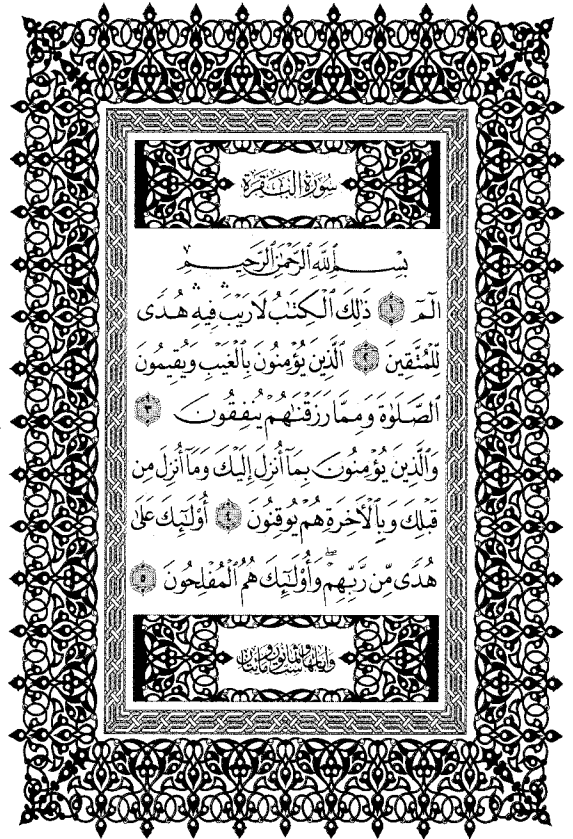 سُورَةُ الْبَقَرَةِ
بِسْمِ ٱللَّهِ ٱلرَّحْمَٰنِ ٱلرَّحِيمِ
الٓمٓ ١ ذَٰلِكَ ٱلْكِتَٰبُ لَا رَيْبَ ۛ فِيهِ ۛ هُدًى
لِّلْمُتَّقِينَ ٢ ٱلَّذِينَ يُؤْمِنُونَ بِٱلْغَيْبِ وَيُقِيمُونَ
ٱلصَّلَوٰةَ وَمِمَّا رَزَقْنَٰهُمْ يُنفِقُونَ ٣
وَٱلَّذِينَ يُؤْمِنُونَ بِمَآ أُنزِلَ إِلَيْكَ وَمَآ أُنزِلَ مِن
قَبْلِكَ وَبِٱلْأَخِرَةِ هُمْ يُوقِنُونَ ٤ أُو۟لَٰٓئِكَ عَلَىٰ
هُدًى مِّن رَّبِّهِمْ ۖ وَأُو۟لَٰٓئِكَ هُمُ ٱلْمُفْلِحُونَ ٥
وآياتها مائتان وست وثمانون